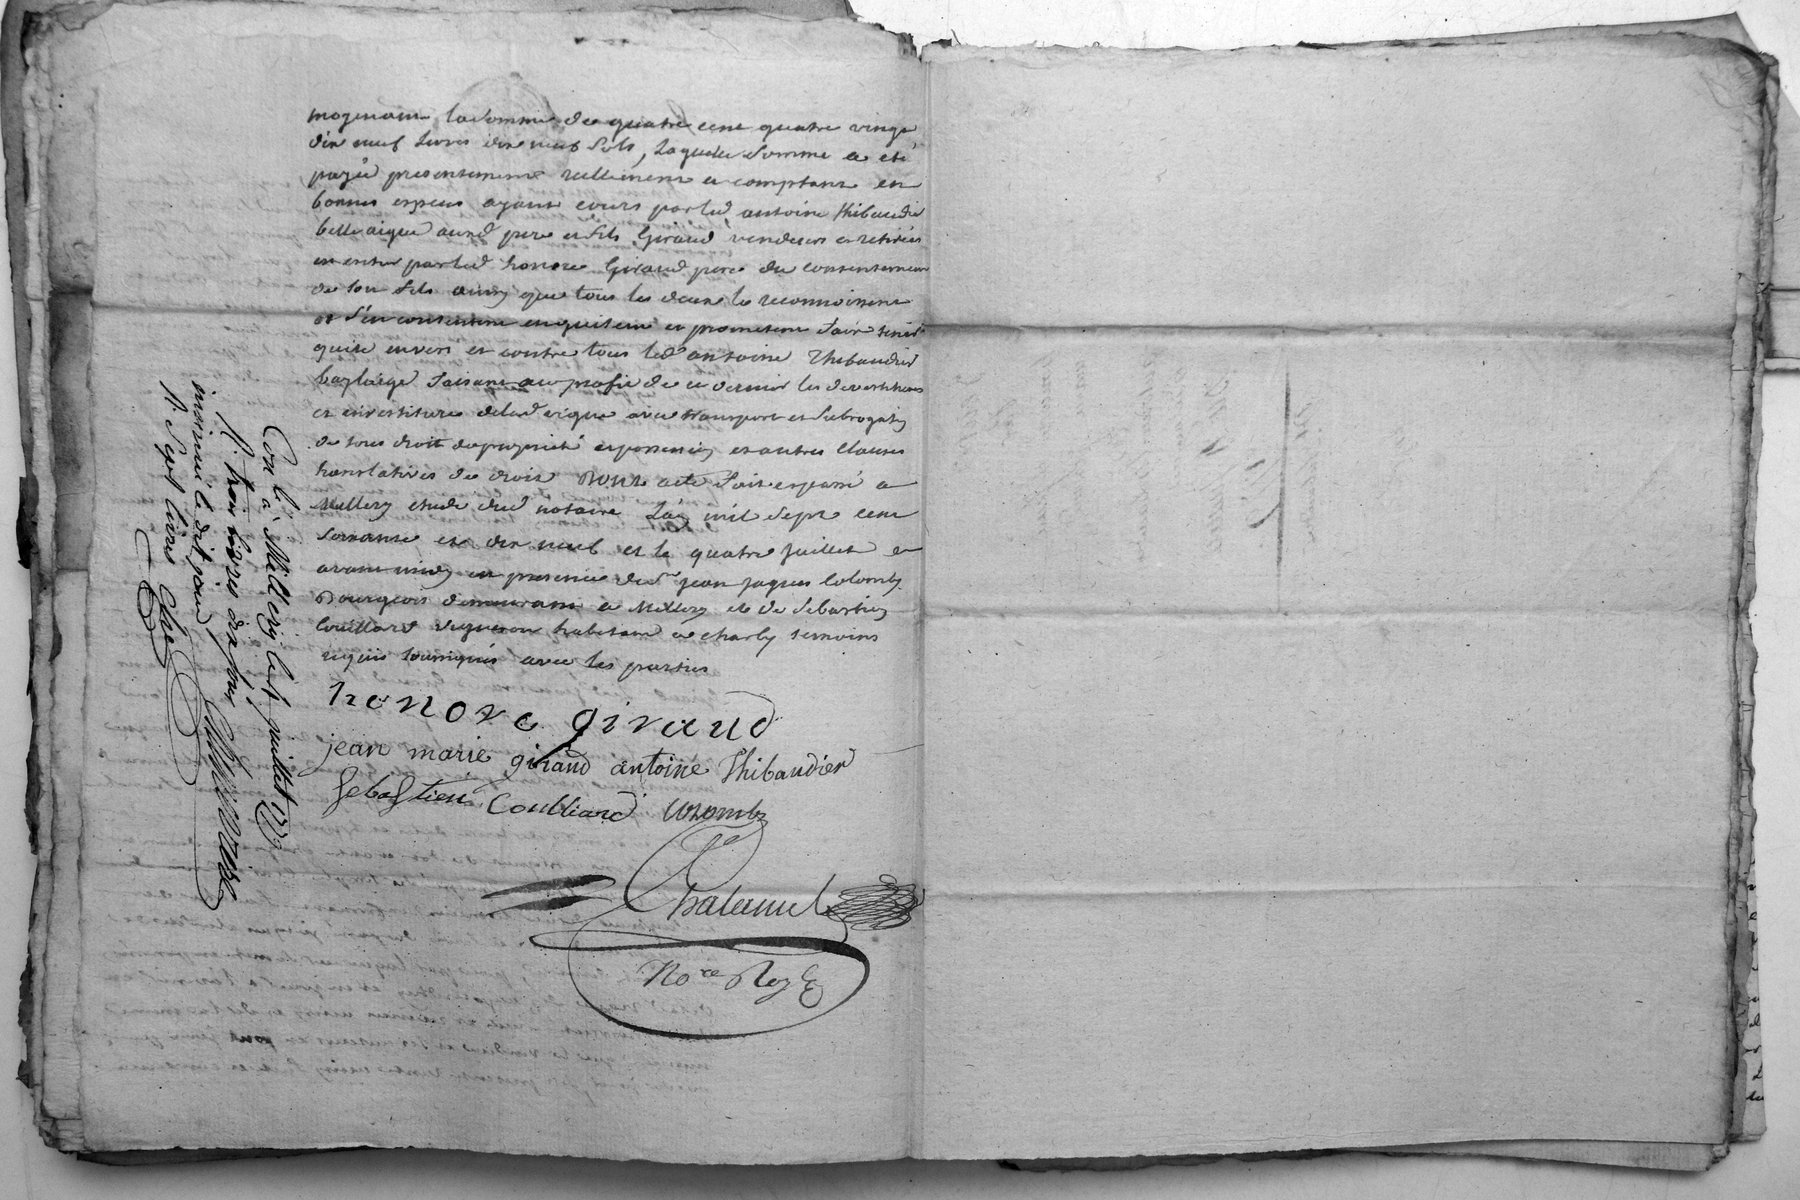 moyenant la somme de quatre cent quatre vingt
dix neuf livres dix neuf sols, laquelle somme a eté
payée presentement reellement et comptant en
bonnes especes ayant cours par led antoine thibaudier
aud pere et fils Giraud vendeurs et retirées
en entier par led honore Giraud pere du consentement
de son fils ainsy que tous les deux le reconnoissent
et s'en contentent en quitent et prometent faire tenir
quite envers et contre tous led antoine Thibaudier
faisant au profit de ce dernier les devestitures
et investitures de lad vigne avec transport et subrogation
de tous droits de propriété et possession et autres clauses
translatives de droit Dont acte fait et passé a
Millery etude dud notaire L'an mil sept cent
soixante et dix neuf et le quatre juillet
avant midy en presence de Sr jean jaques Colomby
Bourgeois demeurant a Millery et de Sebastien
Couillard vigneron habitant a charly temoins
requis soussignés avec les parties
honore giraud
jean marie giraud antoine Thibaudier
Sebastien Coulliard Colomby
Chalamel
Nore Royal
Con le à Millery le 5 juillet 1779
R. trois livres dix sols
insinué le dit jour
R. sept livres